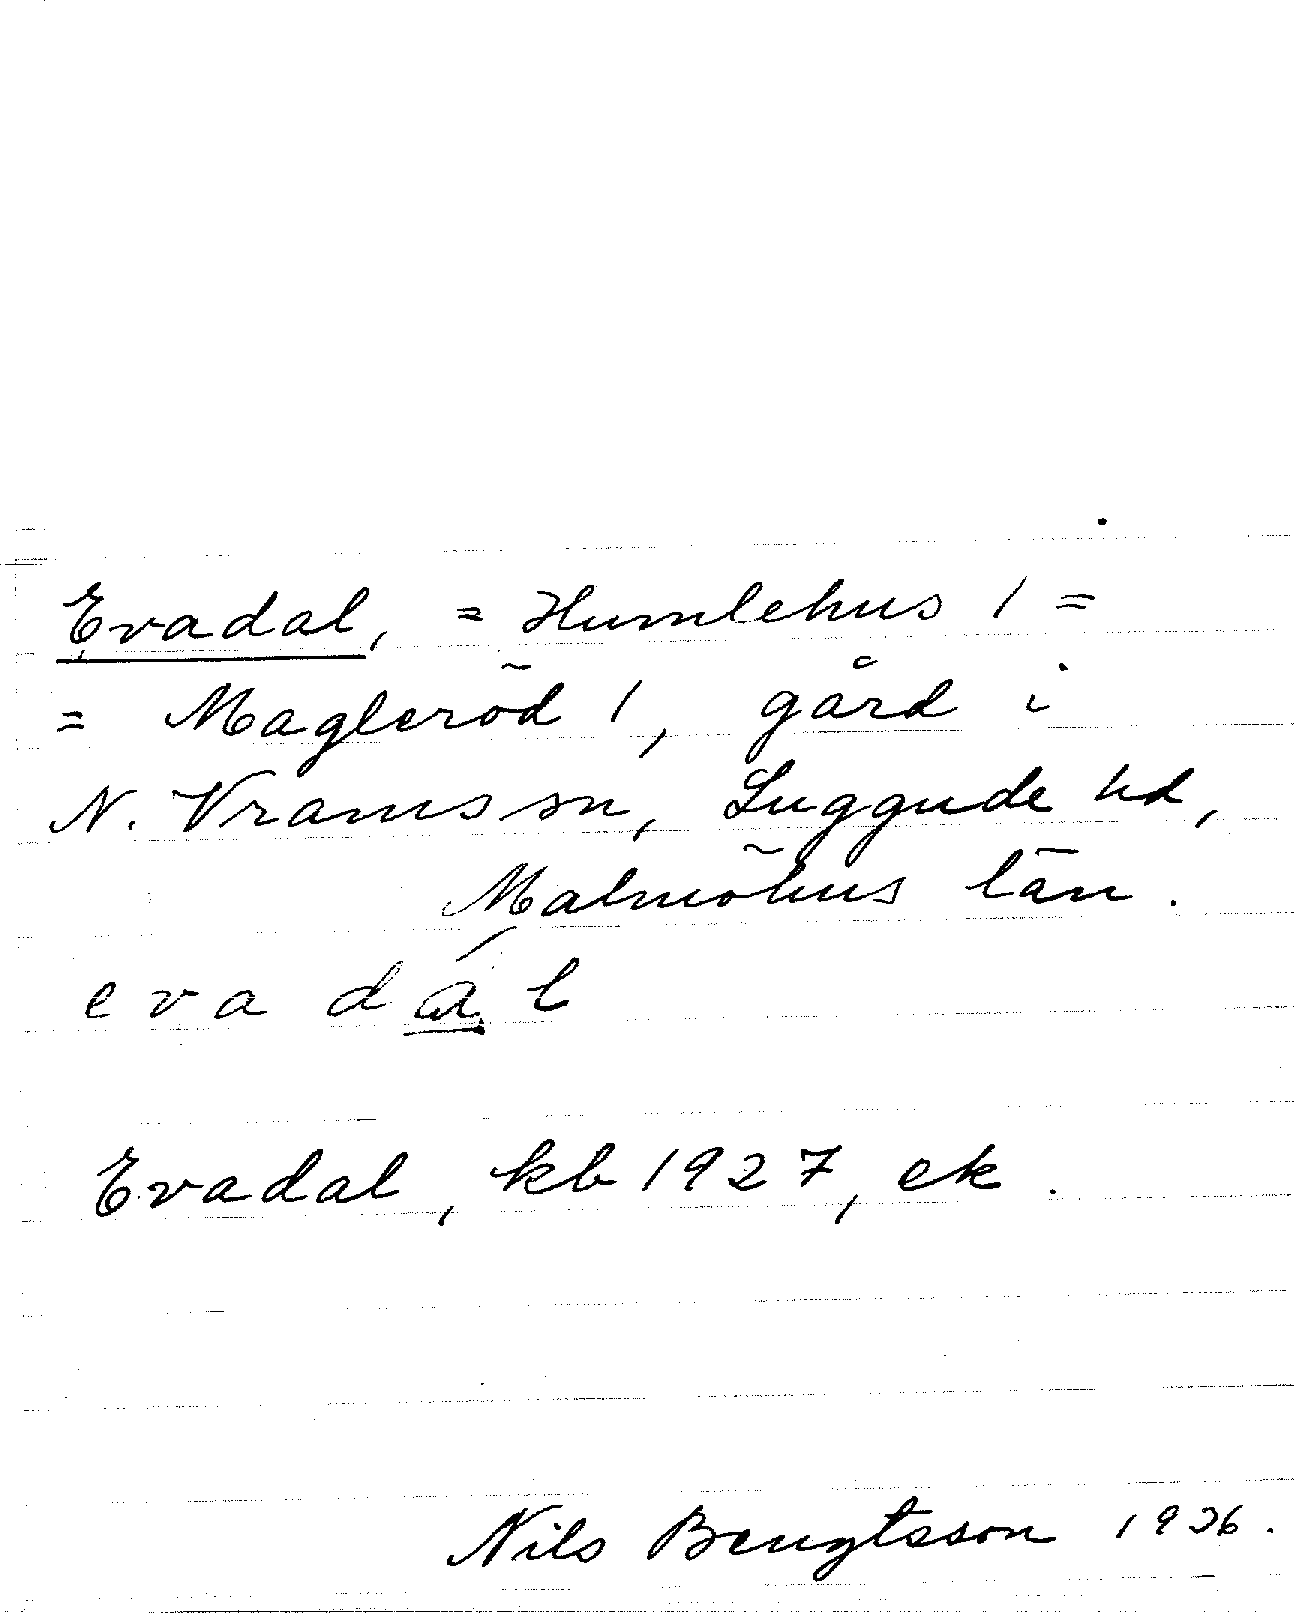 Evadal, = Humlehus 1 =
= Magleröd 1, gård i
N. Vrams sn, Luggude hd,
Malmöhus län.
evadál
Evadal, kb 1927, ek.
Nils Bengtsson 1936.